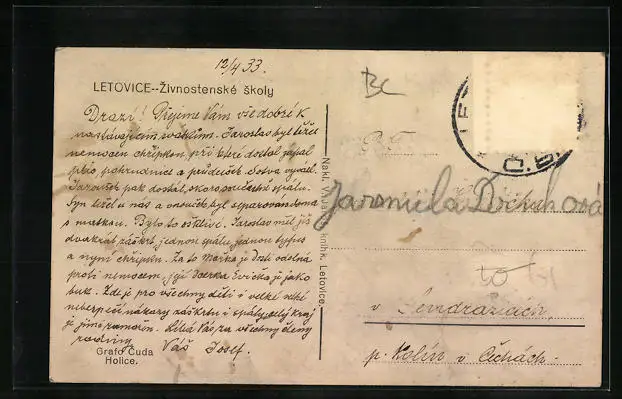 12/4 33.
LETOVICE--Živnostenské školy
Drazí! Přejeme Vám vše dobré k
nastávajícím svátkům. Jaroslav byl těžce
nemocen chřipkou, při které dostal zápal
plic pohrudnice a průdušek. Sotva vyvázl.
Jaroušek pak dostal, skoro současně spálu.
Syn ležel u nás a vnouček byl separován doma
s matkou. Bylo to ošklivé. Jaroslav měl již
dvakrát záškrt, jednou spálu, jednou tyfus
a nyní chřipku. Za to Mařka je dosti odolná
proti nemocem, její dcerka Evička je jako
buk. Zde je pro všechny děti v velké
nebezpečí nákazy záškrtu a spály, celý kraj
je jimi zamořen. Líbá Vás, za všechny členy
rodiny Váš Josef.
Grafo Čuda
Holice.
knihk. Letovice.
Č.S.
Jarmila
v Lendražicích
p. Kolín v Čechách.